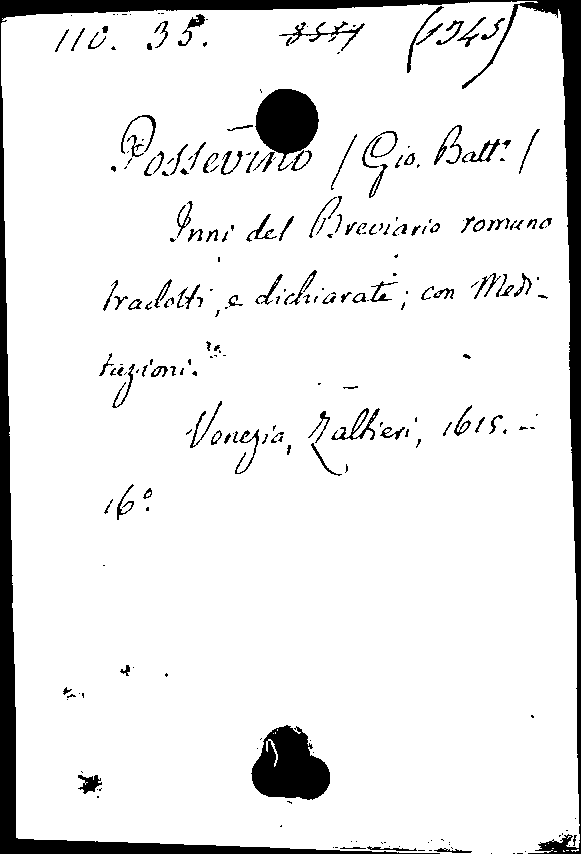 110. 35. 8571 (1345)
Possevino / Gio. Batt.ª /
Inni del Breviario romano
tradotti, e dichiarati; con Medi-
tazioni.
Venezia, Zaltieri, 1615. -
16.º